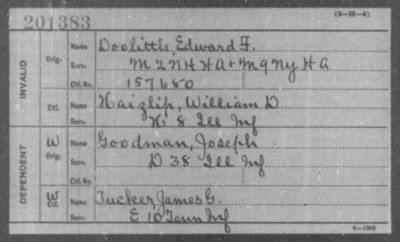 201383
(3-II-4)
INVALID
Orig.
Name Doolittle, Edward F.
Serv. M 2 N H H A + M 9 Ny H A
Ctf. No. 157680
Ctf.
Name Haizlip, William D.
Serv. K 8 Ill Inf
DEPENDENT
W
Orig.
Name Goodman, Joseph
Serv. D 38 Ill Inf
Ctf. No.
W
Ctf.
Name Tucker, James G.
Serv. E 10 Tenn Inf